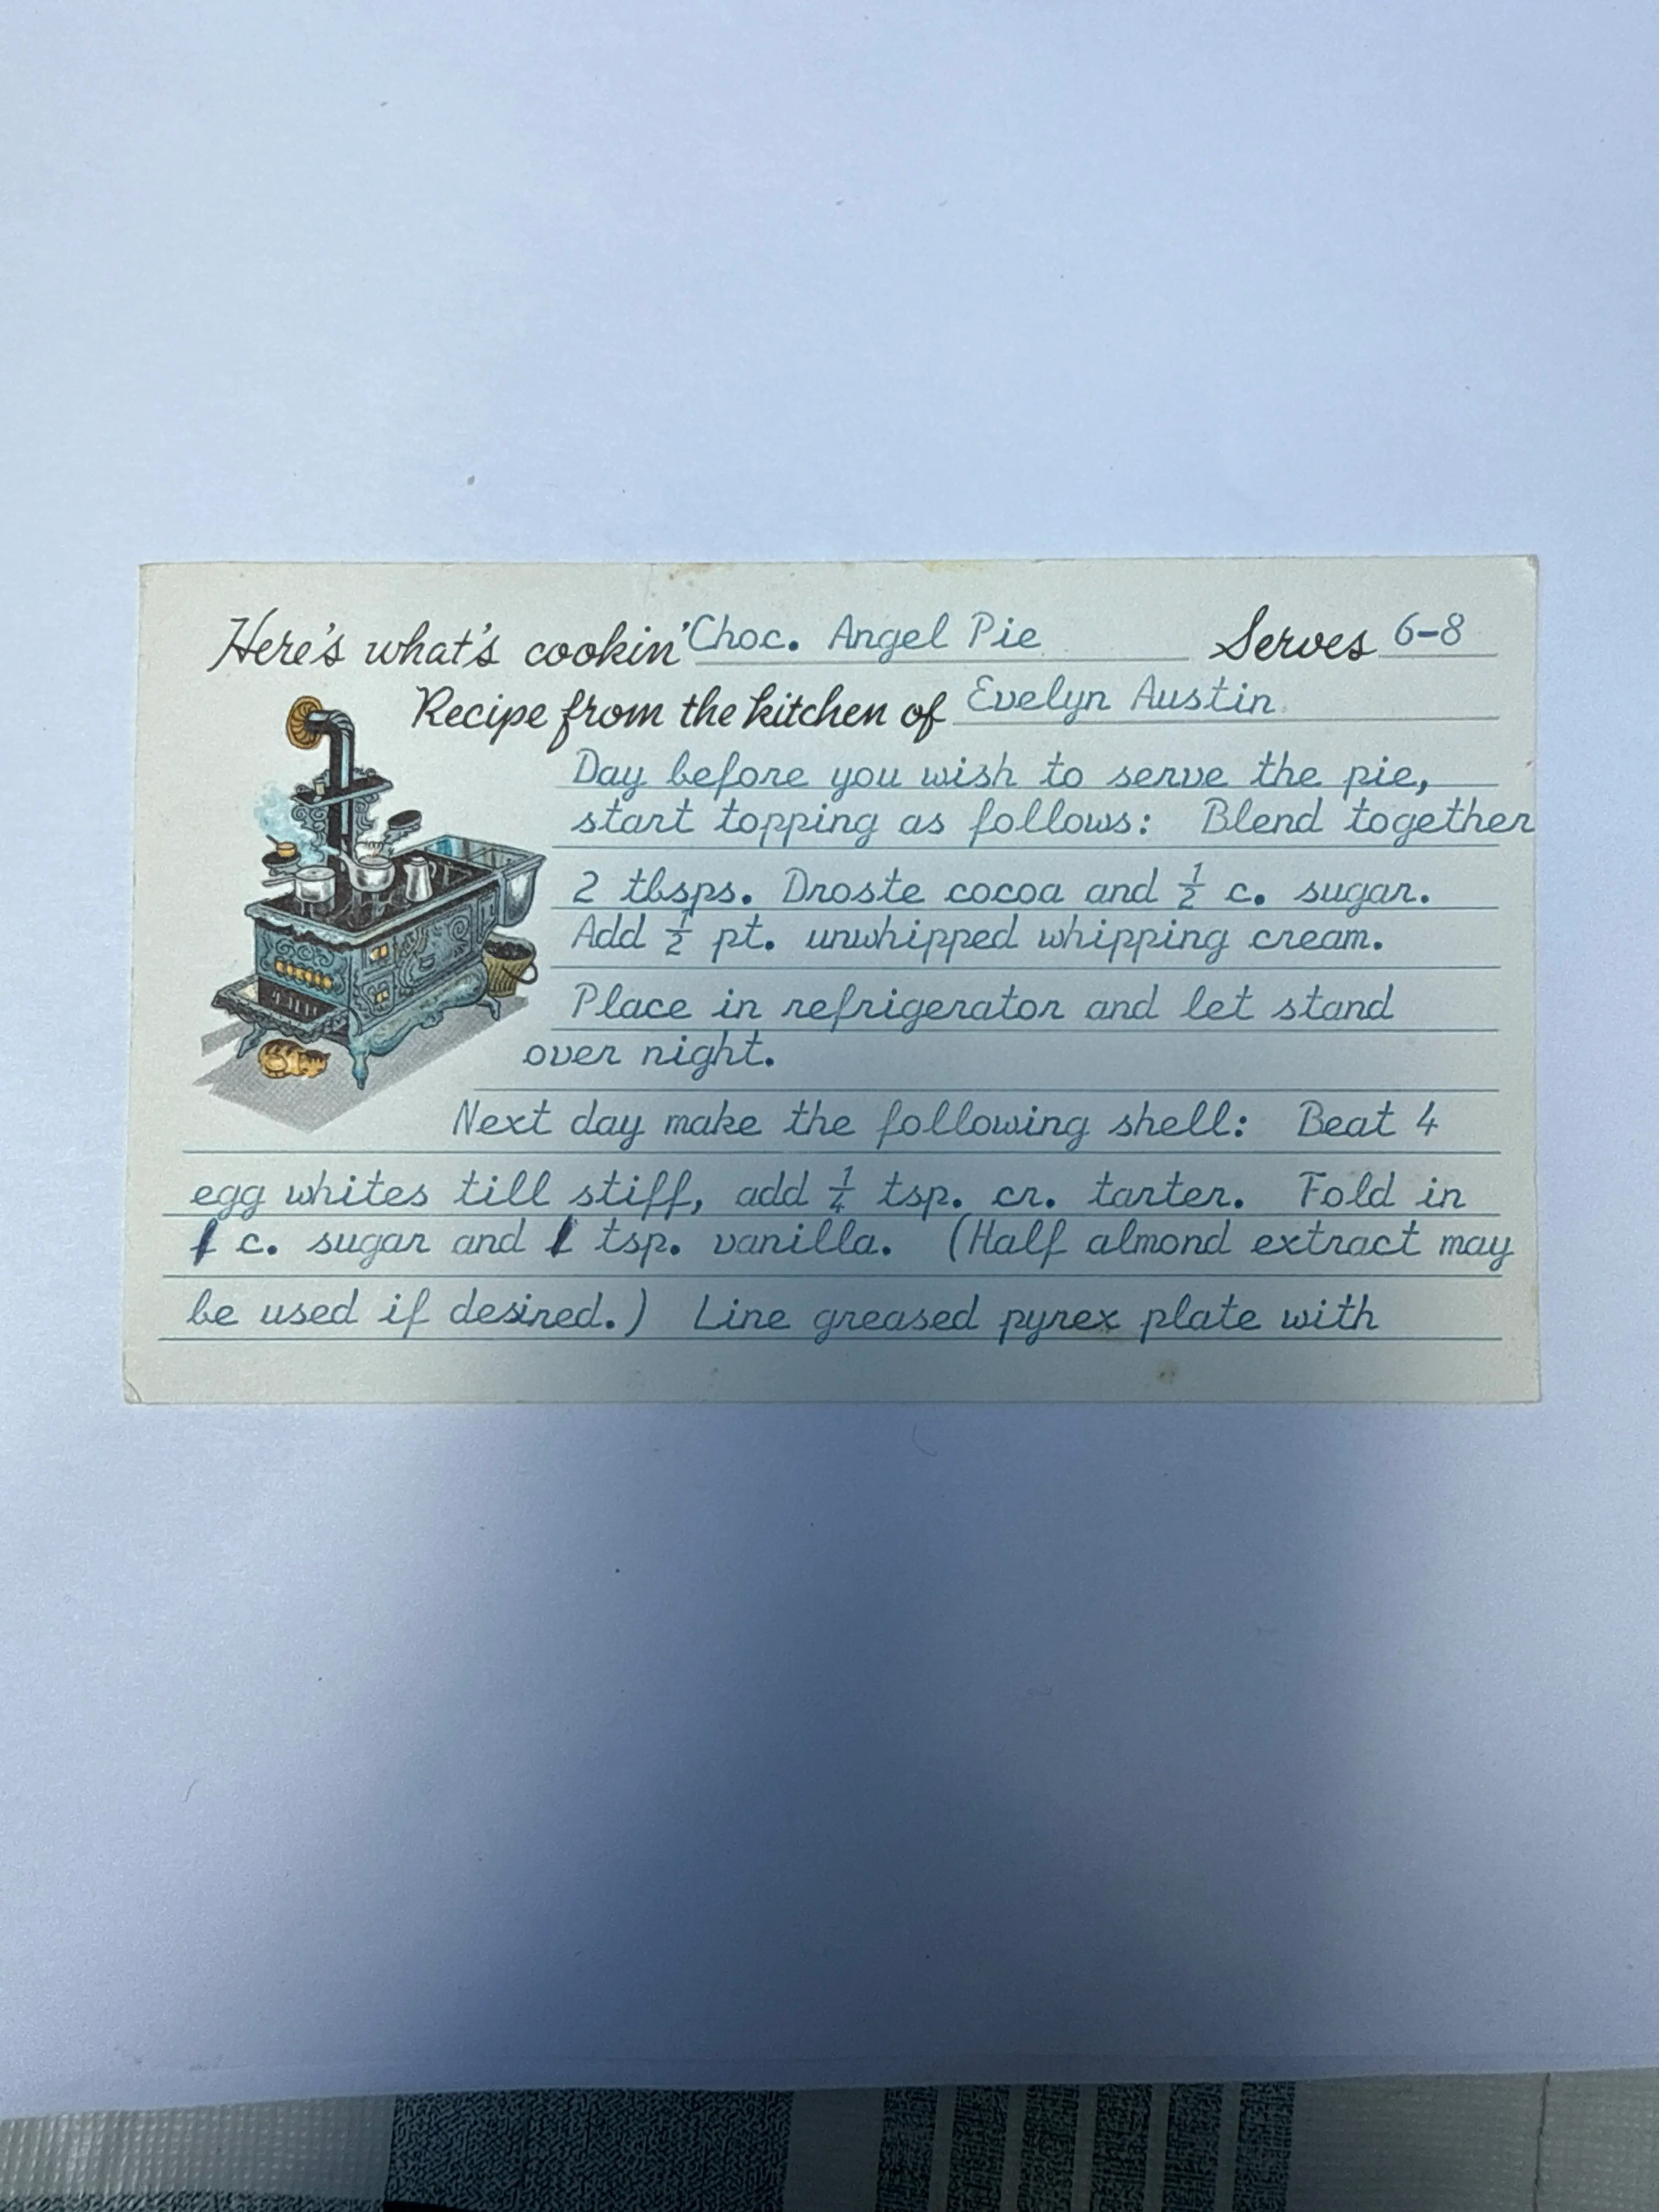 Here's what's cookin' Choc. Angel Pie Serves 6-8
Recipe from the kitchen of Evelyn Austin
Day before you wish to serve the pie,
start topping as follows: Blend together
2 tbsps. Droste cocoa and ½ c. sugar.
Add ½ pt. unwhipped whipping cream.
Place in refrigerator and let stand
over night.
Next day make the following shell: Beat 4
egg whites till stiff, add ¼ tsp. cr. tarter. Fold in
1 c. sugar and 1 tsp. vanilla. (Half almond extract may
be used if desired.) Line greased pyrex plate with